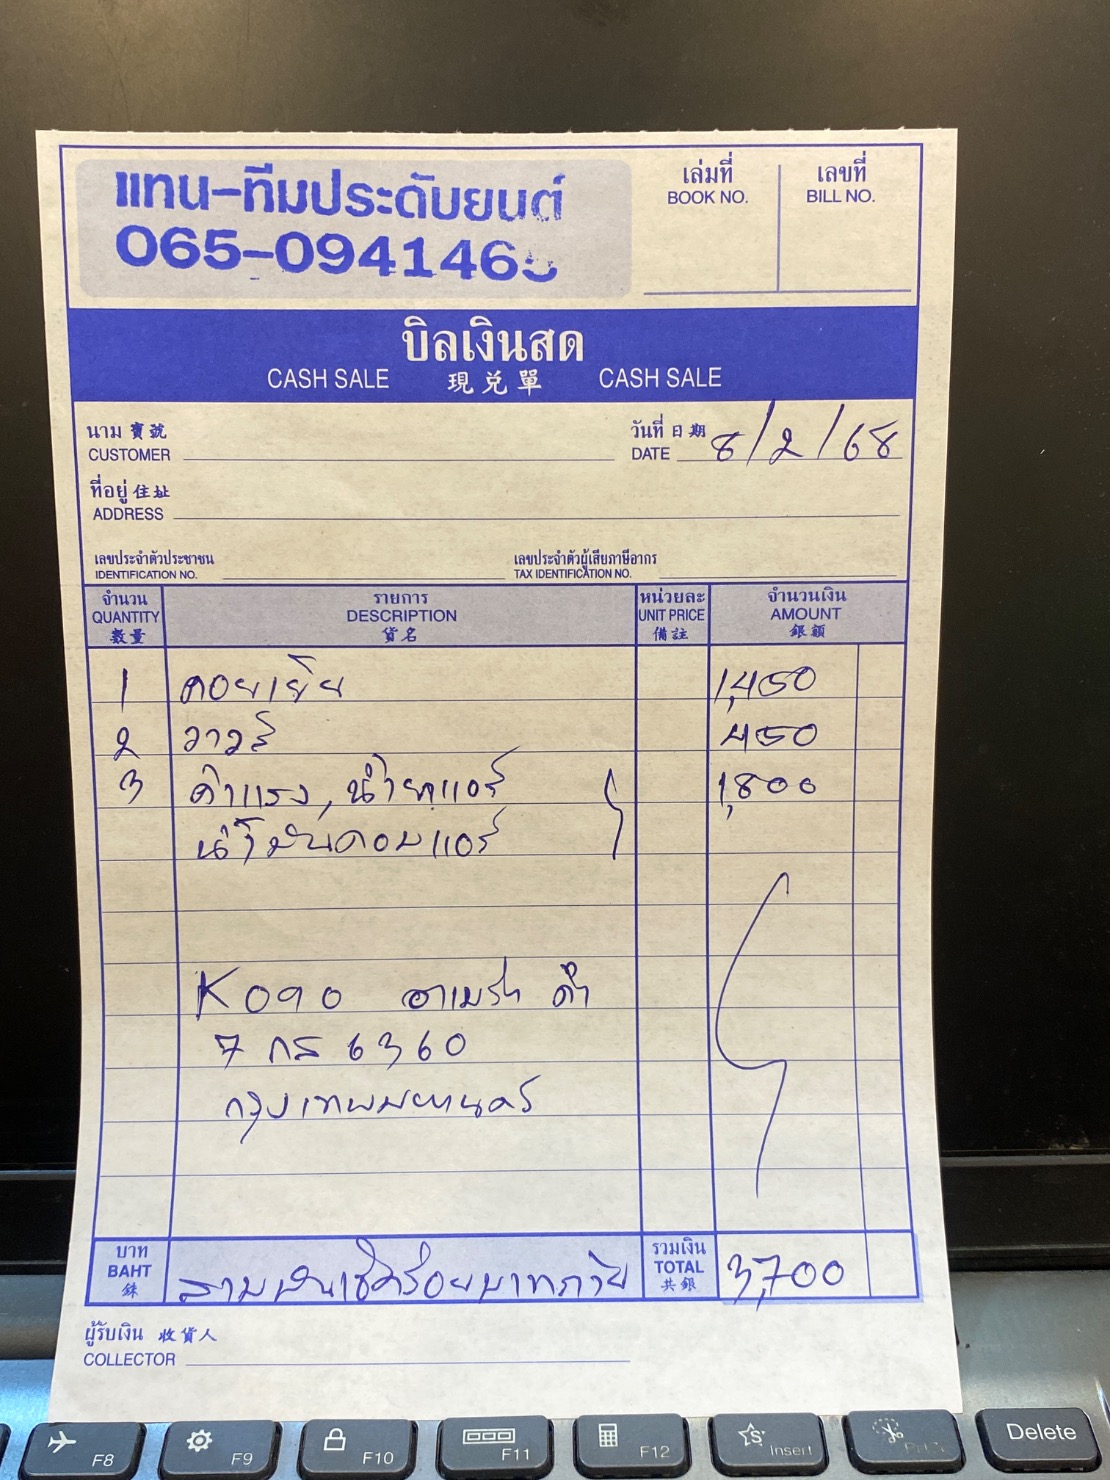 แทน-ทีมประดับยนต์
065-094146
เล่มที่
BOOK NO.
เลขที่
BILL NO.
บิลเงินสด
CASH SALE 現兑單 CASH SALE
นาม 寳號
CUSTOMER
วันที่ 日期
DATE 8/2/68
ที่อยู่ 住址
ADDRESS
เลขประจำตัวประชาชน
IDENTIFICATION NO.
เลขประจำตัวผู้เสียภาษีอากร
TAX IDENTIFICATION NO.
จำนวน
QUANTITY
數量
รายการ
DESCRIPTION
貨名
หน่วยละ
UNIT PRICE
備註
จำนวนเงิน
AMOUNT
銀額
1 คอยเย็น 1,450
2 วาวล์ 450
3 ค่าแรง, น้ำยาแอร์ 1,800
น้ำมันคอมแอร์
K090 ดำ
7 กร 6360
กรุงเทพมหานคร
บาท
BAHT
銖
สามพันเจ็ดร้อยบาทถ้วน
รวมเงิน
TOTAL
共銀
3,700
ผู้รับเงิน 收貨人
COLLECTOR
F8
F9
F10
F11
F12
Insert
Delete